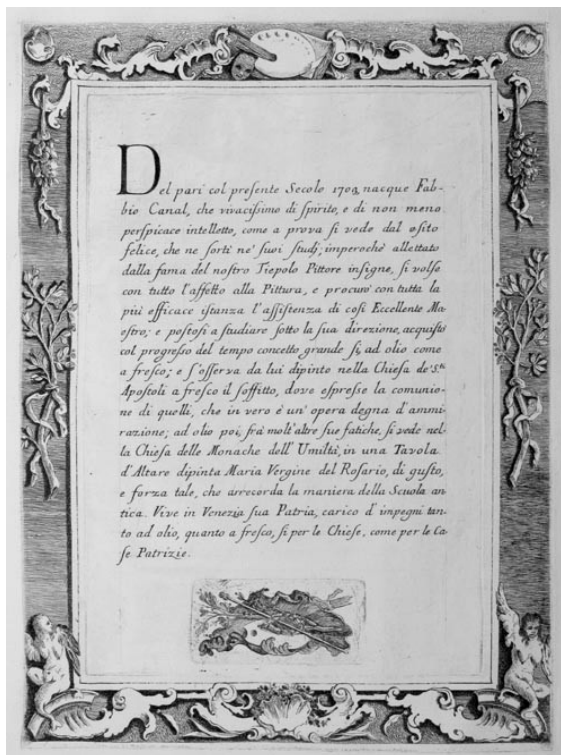 Del pari col preſente Secolo 1703, nacque Fab-
bio Canal, che vivaciſsimo di ſpirito, e di non meno
perſpicace intelletto, come a prova ſi vede dal eſito
felice, che ne ſortì ne' ſuoi ſtudj; imperochè allettato
dalla fama del noſtro Tiepolo Pittore inſigne, ſi volſe
con tutto l'affetto alla Pittura, e procurò con tutta la
più efficace iſtanza l'aſſiſtenza di coſì Eccellente Ma
eſtro; e poſtoſi a ſtudiare ſotto la ſua direzione, acquiſtò
col progreſſo del tempo concetto grande ſi, ad olio come
a freſco; e ſ'oſſerva da lui dipinto nella Chieſa de' S.ti
Apoſtoli a freſco il ſoffitto, dove eſpreſse la comunio-
ne di quelli, che in vero è un' opera degna d'ammi-
razione; ad olio poi, frà molt'altre ſue fatiche, ſi vede nel-
la Chieſa delle Monache dell' Umiltà, in una Tavola
d'Altare dipinta Maria Vergine del Roſario, di guſto,
e forza tale, che arrecorda la maniera della Scuola an
tica. Vive in Venezia ſua Patria, carico d' impegni tan-
to ad olio, quanto a freſco, ſi per le Chieſe, come per le Ca-
ſe Patrizie.